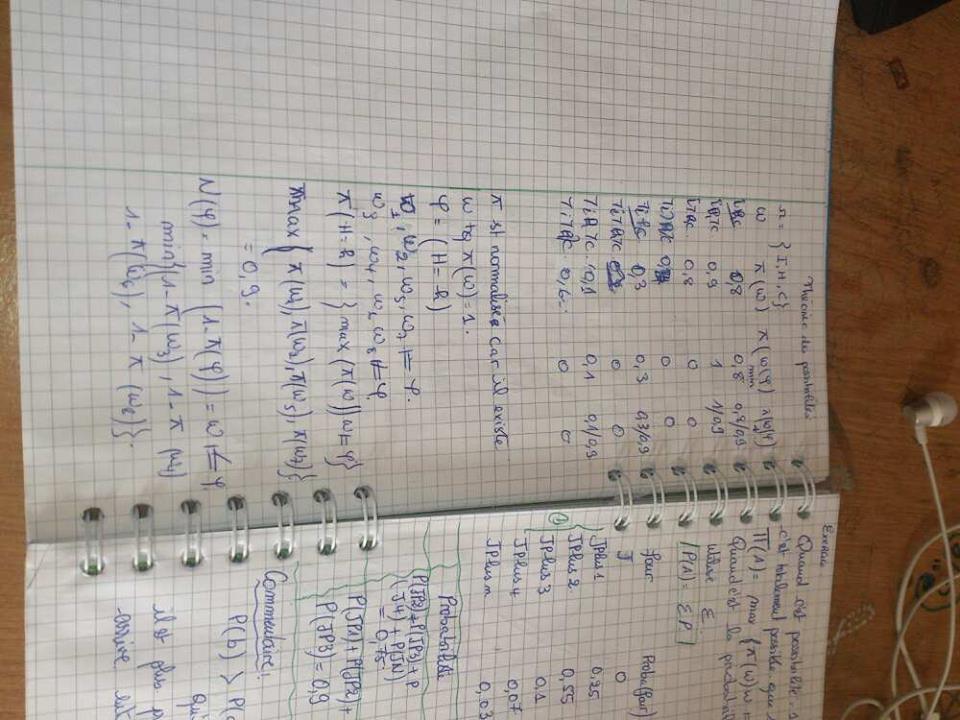 Théorie des possibilités
Ω = { I, H, C }
ω π(ω) π(ω|φ) π(ω|φ)
min
0,8 0,8 0,8/0,9
0,9 1 1/0,9
0,8 0 0
0 0
0,3 0,3 0,3/0,9
0 0
0,1 0,1 0,1/0,9
0,6 0 0
π st normalisée car il existe
ω tq π(ω) = 1.
φ = (H = h)
ω1, ω2, ω5, ω7 ⊨ φ.
ω3, ω4, ω6 ω8 ⊭ φ
π(H=h) = { max (π(ω)) ω ⊨ φ}
max { π(ω1), π(ω2), π(ω5), π(ω7)}
= 0,9.
N(φ) = min (1-π(φ)) = ω ⊭ φ
min{(1-π(ω3), 1-π (ω4)
1-π(ω6), 1-π (ω8)}.
Exercice
Quand c'est possibilité
c'est totalement possible que
Π(A) = max {π(ω) ω
Quand c'est la probabil
utilise Σ
P(A) = ΣP
jour Proba(jour)
J 0
JPlus1 0,25
JPlus2 0,55
JPlus3 0,1
JPlus4 0,07
JPlusn 0,03
①
Probabilité
P(JP2)+P(JP3)+P
(J4) + P(JN)
= 0,75
P(JP1)+P(JP2)+
P(JP3) = 0,9
Commentaire:
P(b) > P(
qu'
il est plus p
arrive